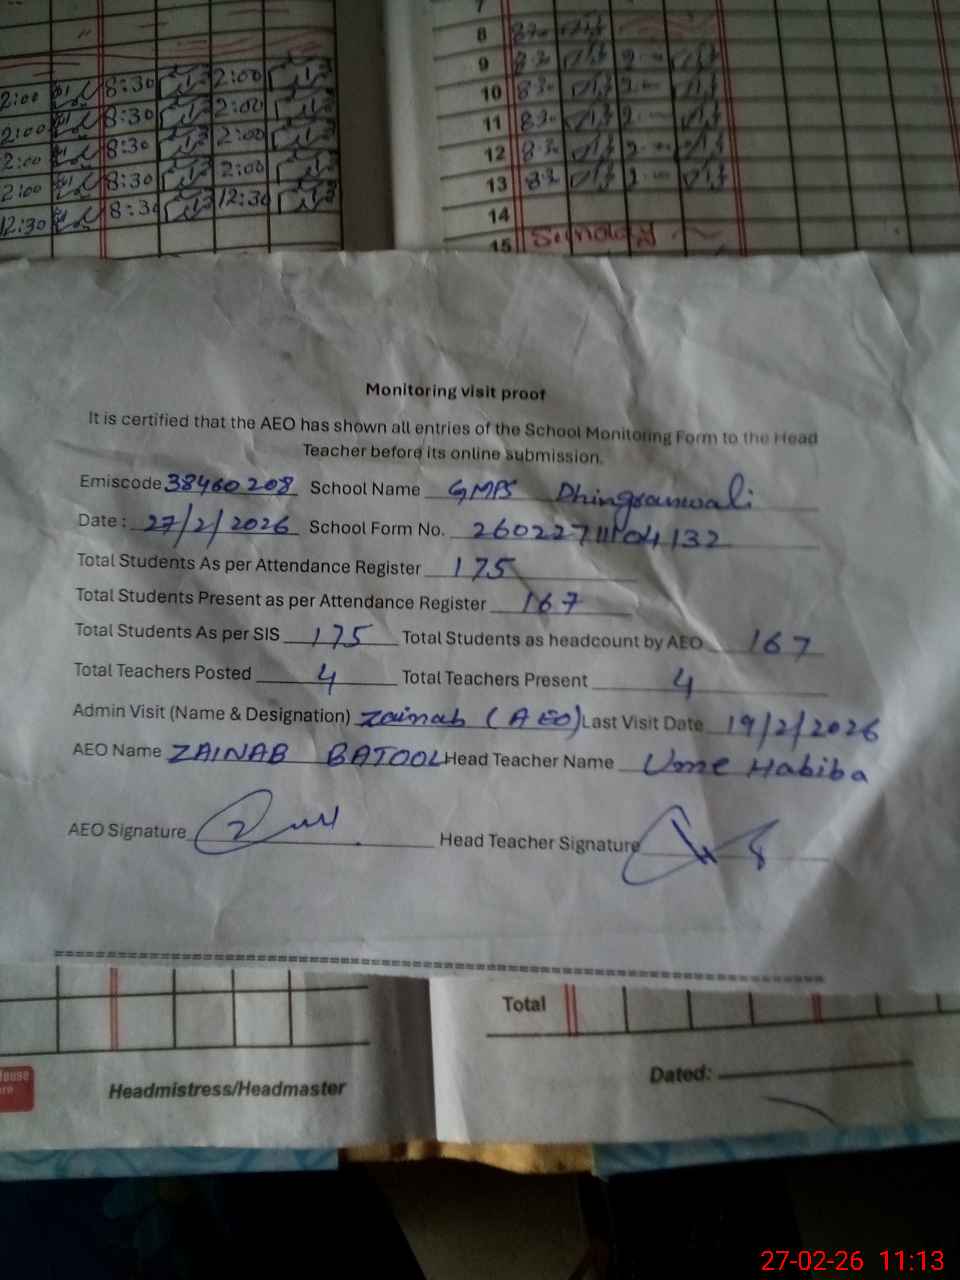 7
8 8:30
9 8:30 2:00
10 8:30 2:00
11 8:30 2:00
12 8:30 2:00
13 8:30 2:00
14
15 Sunday
2:00 8:30 2:00
2:00 8:30 2:00
2:00 8:30 2:00
2:00 8:30 2:00
12:30 8:30 12:30
Monitoring visit proof
It is certified that the AEO has shown all entries of the School Monitoring Form to the Head
Teacher before its online submission.
Emiscode 38460208 School Name GMPS Dhingranwali
Date : 27/2/2026 School Form No.
Total Students As per Attendance Register 175
Total Students Present as per Attendance Register 167
Total Students As per SIS 175 Total Students as headcount by AEO 167
Total Teachers Posted 4 Total Teachers Present 4
Admin Visit (Name & Designation) Zainab (AEO) Last Visit Date 19/2/2026
AEO Name ZAINAB BATOOL Head Teacher Name Ume Habiba
AEO Signature Head Teacher Signature
Total
Headmistress/Headmaster
Dated:
27-02-26 11:13